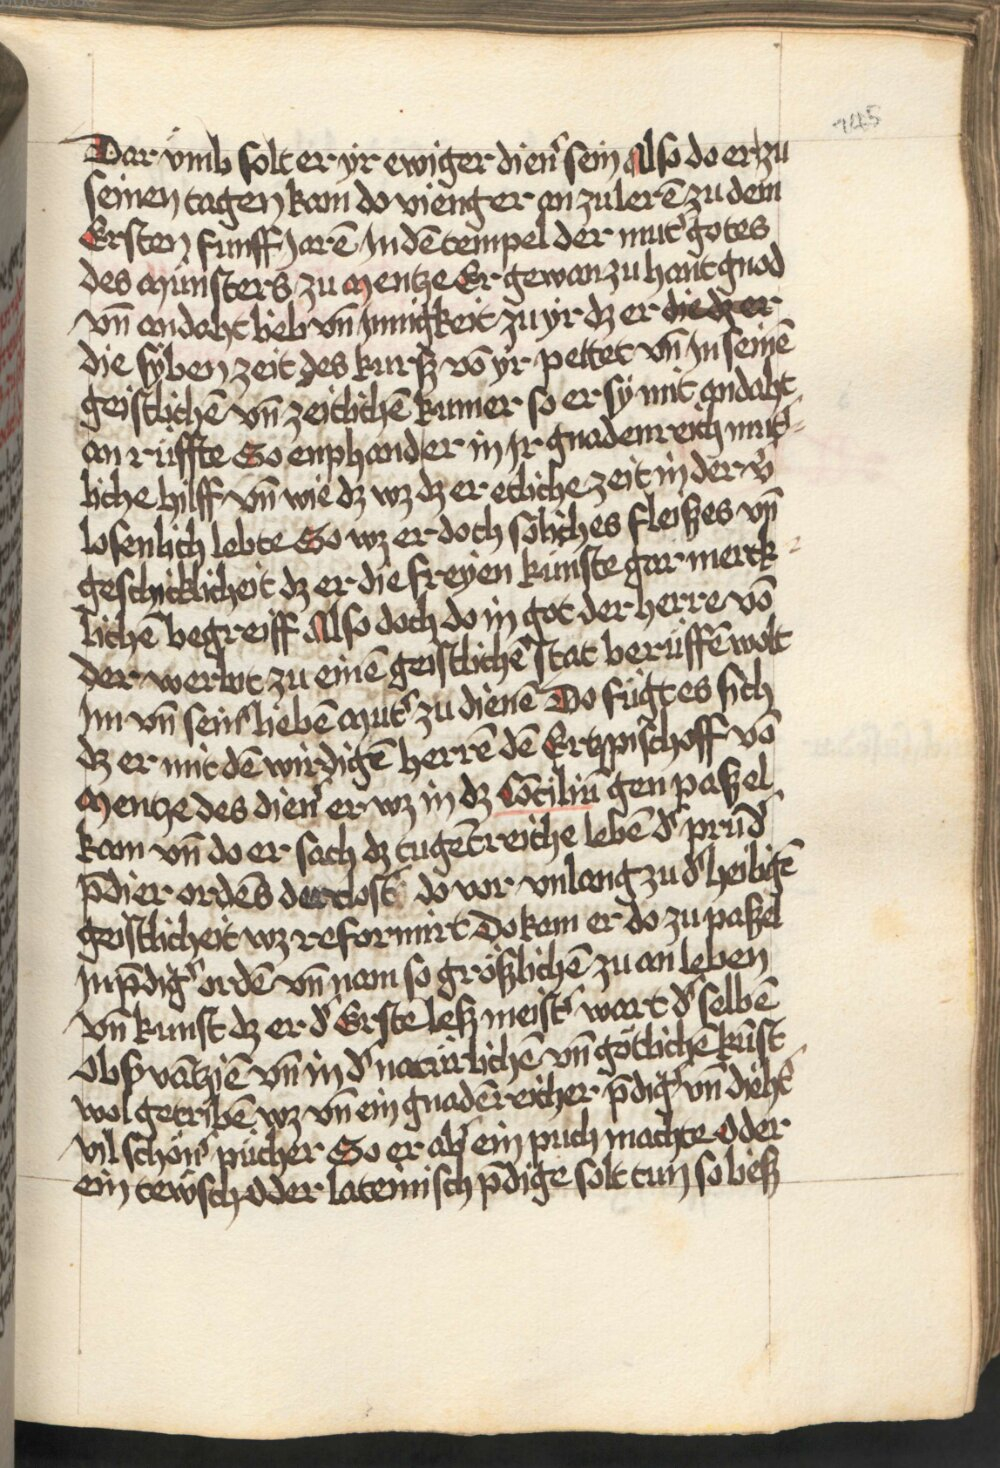 145
Dar vmb solt er yr ewiger dien̾ sein Also do er zu
seinen tagen kam do vieng er an zu lerē zu dem
Ersten funff Jarē In dē tempel der mut̾ gotes
des münsters zu mentze Er gewan zu hant gnod
vn̄ andaht lieb vn̄ Jnnigkeit zu yr dz er die dz er
die syben zeit des kurß vō yr pettet vn̄ In seinē
geistlichē vn̄ zeitlichē kumer so er sy mit andaht
an rüffte So enphand er in Jr gnadenreich mut̾
liche hilff vn̄ wie dz wz dz er etliche zeit in der v̾
losenlich lebte So wz er doch söliches fleißes vn̄
geschicklicheit dz er die freyen künste gar merck
lichē begreiff Also doch do in got der herre vō
der werlut zu einē geistlichē stat berüffē wolt
Im vn̄ sein̾ liebē mut̾ zu dienē Do fügt es sich
dz er mit dē wirdigē herrē dē Ertzpischoff vō
mentze des dien̾ er wz in dz Cōciliū gen paßel
kam vn̄ do er sach dz tugētreiche lebē d̾ prud̾
p̄dier ordēs der clost̾ do vor vnlang zu d̾ heiligē
geistlicheit wz reformirt Do kam er do zu paßel
In p̄dig̾ ordē vn̄ nam so größlichē zu an leben
vn̄ kunst dz er d̾ Erste leß meist̾ wart d̾ selbē
Obs̾vātziē vn̄ in d̾ natürlichē vn̄ götlichē kūst
wol getribē wz vn̄ ein gnadēreicher p̄dig̾ vn̄ dieht̾
vil schön̾ pücher So er ab̾ ein puch machte oder
ein tewsch oder lateinisch p̄dige solt tun so ließ